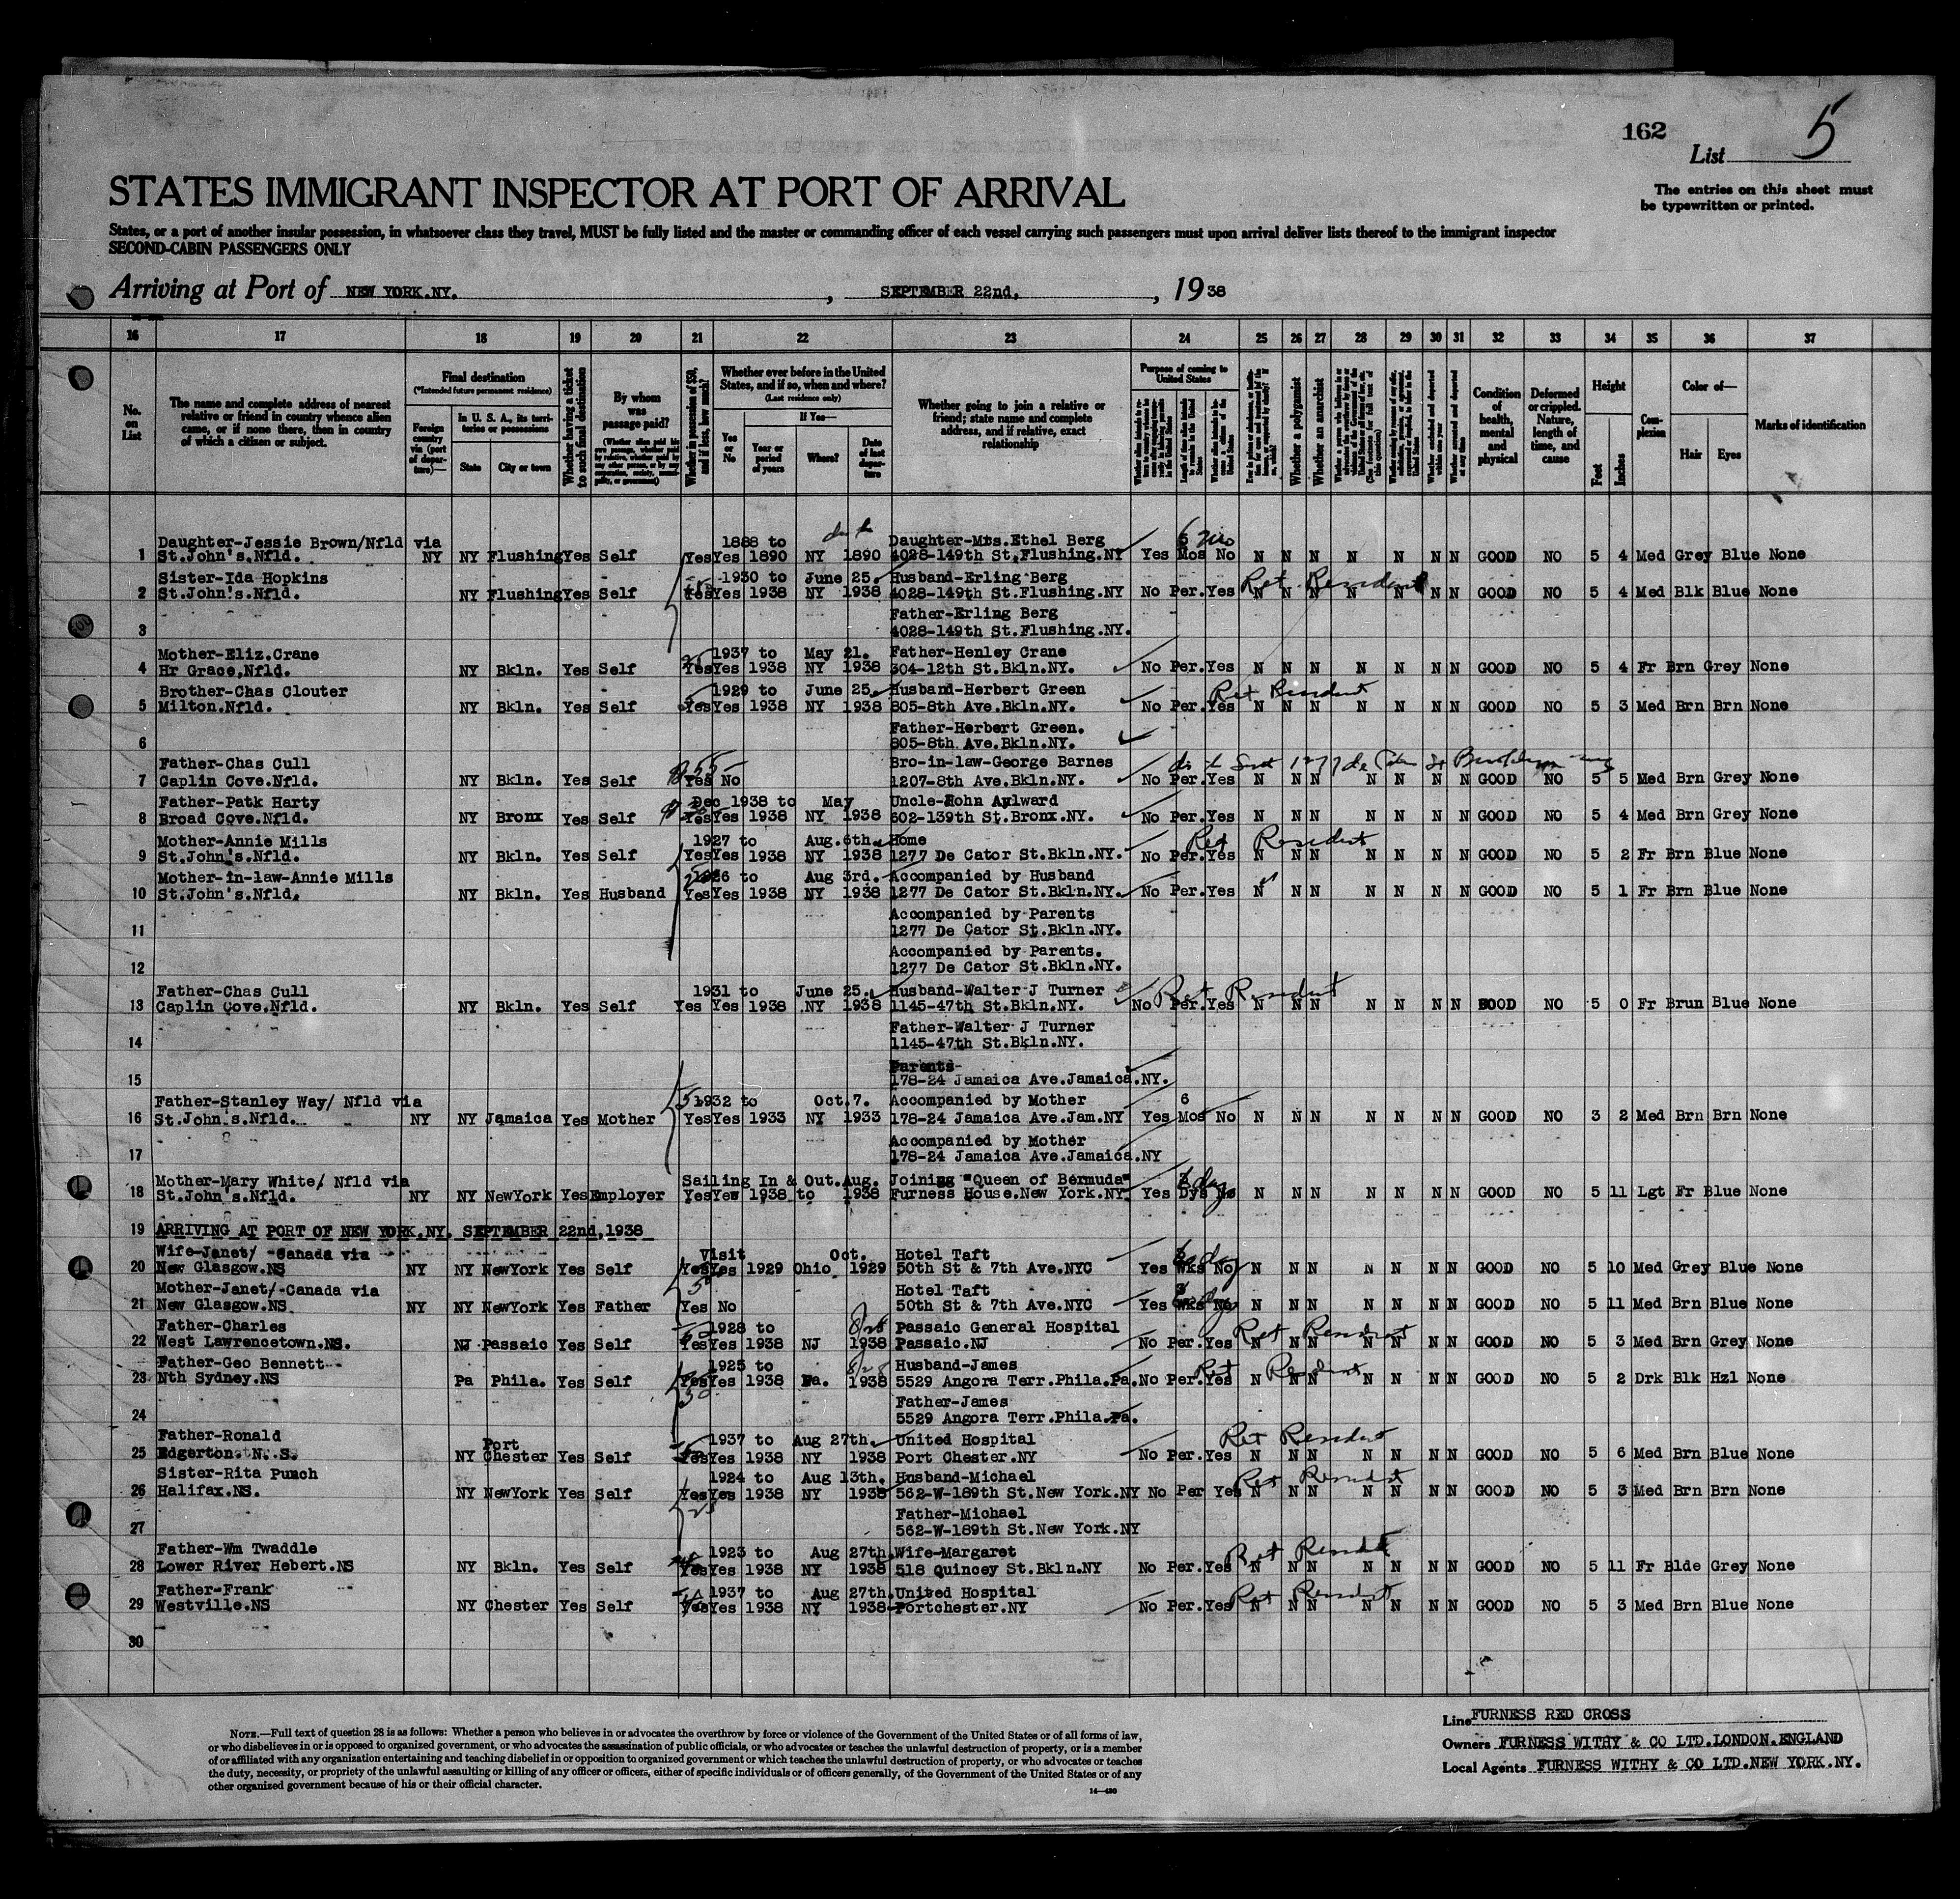 162
List 5
STATES IMMIGRANT INSPECTOR AT PORT OF ARRIVAL
The entries on this sheet must
be typewritten or printed.
States, or a port of another insular possession, in whatsoever class they travel, MUST be fully listed and the master or commanding officer of each vessel carrying such passengers must upon arrival deliver lists thereof to the immigrant inspector
SECOND-CABIN PASSENGERS ONLY
Arriving at Port of NEW YORK.NY. , SEPTEMBER 22nd, , 1938
16 17 18 19 20 21 22 23 24 25 26 27 28 29 30 31 32 33 34 35 36 37
No. on List
The name and complete address of nearest relative or friend in country whence alien came, or if none there, then in country of which a citizen or subject.
Final destination
(*Intended future permanent residence)
Foreign country via (port of departure)—
In U. S. A., its territories or possessions
State
City or town
Whether having a ticket to such final destination
By whom was passage paid?
Whether in possession of $50, and if less, how much?
Whether ever before in the United States, and if so, when and where?
(Last residence only)
Yes or No
If Yes—
Year or period of years
Where?
Date of last departure
Whether going to join a relative or friend; state name and complete address, and if relative, exact relationship
Purpose of coming to United States
Whether a polygamist
Whether an anarchist
Condition of health, mental and physical
Deformed or crippled. Nature, length of time, and cause
Height
Feet
Inches
Complexion
Color of—
Hair
Eyes
Marks of identification
Daughter-Jessie Brown/Nfld via 1888 to Daughter-Mrs.Ethel Berg 6
1 St.John's.Nfld. NY NY Flushing Yes Self Yes Yes 1890 NY 1890 4028-149th St.Flushing.NY Yes Mos No N N N N N N N GOOD NO 5 4 Med Grey Blue None
Sister-Ida Hopkins 1930 to June 25. Husband-Erling Berg Ret Resident
2 St.John's.Nfld. NY Flushing Yes Self Yes Yes 1938 NY 1938 4028-149th St.Flushing.NY No Per. Yes N N N N N N N GOOD NO 5 4 Med Blk Blue None
Father-Erling Berg
3 4028-149th St.Flushing.NY.
Mother-Eliz.Crane 1937 to May 21. Father-Henley Crane
4 Hr Grace,Nfld. NY Bkln. Yes Self Yes Yes 1938 NY 1938 304-12th St.Bkln.NY. No Per. Yes N N N N N N N GOOD NO 5 4 Fr Brn Grey None
Brother-Chas Clouter 1929 to June 25. Husband-Herbert Green Ret Resident
5 Milton.Nfld. NY Bkln. Yes Self Yes Yes 1938 NY 1938 805-8th Ave.Bkln.NY. No Per. Yes N N N N N N N GOOD NO 5 3 Med Brn Brn None
Father-Herbert Green.
6 805-8th Ave.Bkln.NY.
Father-Chas Cull Bro-in-law-George Barnes
7 Caplin Cove.Nfld. NY Bkln. Yes Self Yes No 1207-8th Ave.Bkln.NY. No Per. Yes N N N N N N N GOOD NO 5 5 Med Brn Grey None
Father-Patk Harty Dec 1938 to May Uncle-John Aylward
8 Broad Cove.Nfld. NY Bronx Yes Self Yes Yes 1938 NY 1938 602-139th St.Bronx.NY. No Per. Yes N N N N N N N GOOD NO 5 4 Med Brn Grey None
Mother-Annie Mills 1927 to Aug.6th. Home Ret Resident
9 St.John's.Nfld. NY Bkln. Yes Self Yes Yes 1938 NY 1938 1277 De Cator St.Bkln.NY. No Per. Yes N N N N N N N GOOD NO 5 2 Fr Brn Blue None
Mother-in-law-Annie Mills 26 to Aug 3rd. Accompanied by Husband
10 St.John's.Nfld. NY Bkln. Yes Husband Yes Yes 1938 NY 1938 1277 De Cator St.Bkln.NY. No Per. Yes N N N N N N N GOOD NO 5 1 Fr Brn Blue None
Accompanied by Parents
11 1277 De Cator St.Bkln.NY.
Accompanied by Parents.
12 1277 De Cator St.Bkln.NY.
Father-Chas Cull 1931 to June 25. Husband-Walter J Turner Ret Resident
13 Caplin Cove.Nfld. NY Bkln. Yes Self Yes Yes 1938 NY 1938 1145-47th St.Bkln.NY. No Per. Yes N N N N N N N GOOD NO 5 0 Fr Brun Blue None
Father-Walter J Turner
14 1145-47th St.Bkln.NY.
Parents-
15 178-24 Jamaica Ave.Jamaica.NY.
Father-Stanley Way/ Nfld via 1932 to Oct.7. Accompanied by Mother 6
16 St.John's.Nfld. NY NY Jamaica Yes Mother Yes Yes 1933 NY 1933 178-24 Jamaica Ave.Jam.NY Yes Mos No N N N N N N N GOOD NO 3 2 Med Brn Brn None
Accompanied by Mother
17 178-24 Jamaica Ave.Jamaica.NY
Mother-Mary White/ Nfld via Sailing In & Out.Aug. Joining "Queen of Bermuda"
18 St.John's.Nfld. NY NY NewYork Yes Employer Yes Yes 1938 to 1938 Furness House.New York.NY Yes Dys No N N N N N N N GOOD NO 5 11 Lgt Fr Blue None
19 ARRIVING AT PORT OF NEW YORK.NY. SEPTEMBER 22nd,1938
Wife-Janet/ -Canada via Visit Oct. Hotel Taft
20 New Glasgow.NS NY NY NewYork Yes Self Yes Yes 1929 Ohio 1929 50th St & 7th Ave.NYC Yes Wks No N N N N N N N GOOD NO 5 10 Med Grey Blue None
Mother-Janet/-Canada via Hotel Taft
21 New Glasgow.NS NY NY NewYork Yes Father Yes No 50th St & 7th Ave.NYC Yes Wks No N N N N N N N GOOD NO 5 11 Med Brn Blue None
Father-Charles 1928 to Passaic General Hospital Ret Resident
22 West Lawrencetown.NS. NJ Passaic Yes Self Yes Yes 1938 NJ 1938 Passaic.NJ No Per. Yes N N N N N N N GOOD NO 5 3 Med Brn Grey None
Father-Geo Bennett 1925 to Husband-James Ret Resident
23 Nth Sydney.NS Pa Phila. Yes Self Yes Yes 1938 Pa. 1938 5529 Angora Terr.Phila.Pa. No Per. Yes N N N N N N N GOOD NO 5 2 Drk Blk Hzl None
Father-James
24 5529 Angora Terr.Phila.Pa.
Father-Ronald Port 1937 to Aug 27th. United Hospital Ret Resident
25 Edgerton. N.S. NY Chester Yes Self Yes Yes 1938 NY 1938 Port Chester.NY No Per. Yes N N N N N N N GOOD NO 5 6 Med Brn Blue None
Sister-Rita Punch 1924 to Aug 13th. Husband-Michael Ret Resident
26 Halifax.NS. NY NewYork Yes Self Yes Yes 1938 NY 1938 562-W-189th St.New York.NY No Per Yes N N N N N N N GOOD NO 5 3 Med Brn Brn None
Father-Michael
27 562-W-189th St.New York.NY
Father-Wm Twaddle 1923 to Aug 27th. Wife-Margaret
28 Lower River Hebert.NS NY Bkln. Yes Self Yes Yes 1938 NY 1938 518 Quincey St.Bkln.NY No Per. Yes N N N N N N N GOOD NO 5 11 Fr Blde Grey None
Father-Frank 1937 to Aug 27th. United Hospital Ret Resident
29 Westville.NS NY Chester Yes Self Yes Yes 1938 NY 1938 Portchester.NY No Per. Yes N N N N N N N GOOD NO 5 3 Med Brn Blue None
30
NOTE.—Full text of question 28 is as follows: Whether a person who believes in or advocates the overthrow by force or violence of the Government of the United States or of all forms of law,
or who disbelieves in or is opposed to organized government, or who advocates the assassination of public officials, or who advocates or teaches the unlawful destruction of property, or is a member
of or affiliated with any organization entertaining and teaching disbelief in or opposition to organized government or which teaches the unlawful destruction of property, or who advocates or teaches
the duty, necessity, or propriety of the unlawful assaulting or killing of any officer or officers, either of specific individuals or of officers generally, of the Government of the United States or of any
other organized government because of his or their official character.
14—430
Line FURNESS RED CROSS
Owners FURNESS WITHY & CO LTD.LONDON.ENGLAND
Local Agents FURNESS WITHY & CO LTD.NEW YORK.NY.